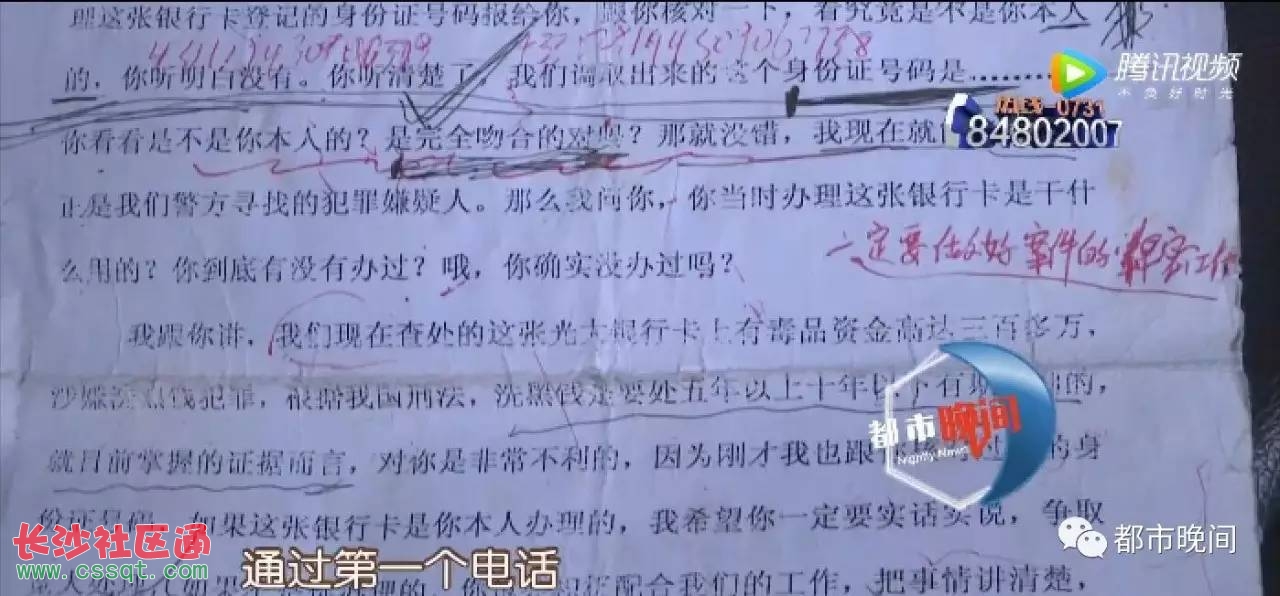 理这张银行卡登记的身份证号码报给你，跟你核对一下，看究竟是不是你本人
的，你听明白没有。你听清楚了，我们调取出来的这个身份证号码是………
腾讯视频
不负好时光
热线-0731
84802007
你看看是不是你本人的？是完全吻合的对吗？那就没错，我现在就
正是我们警方寻找的犯罪嫌疑人。那么我问你，你当时办理这张银行卡是干什
么用的？你到底有没有办过？哦，你确实没办过吗？
一定要做好案件的 工作
我跟你讲，我们现在查处的这张光大银行卡上有毒品资金高达三百多万，
涉嫌洗黑钱犯罪，根据我国刑法，洗黑钱是要处五年以上十年以下有期 的，
都市晚间
Nightly News
就目前掌握的证据而言，对你是非常不利的，因为刚才我也跟 过 的身
份证号码，如果这张银行卡是你本人办理的，我希望你一定要实话实说，争取
都市晚间
长沙社区通
www.cssqt.com
通过第一个电话
配合我们的工作，把事情讲清楚，